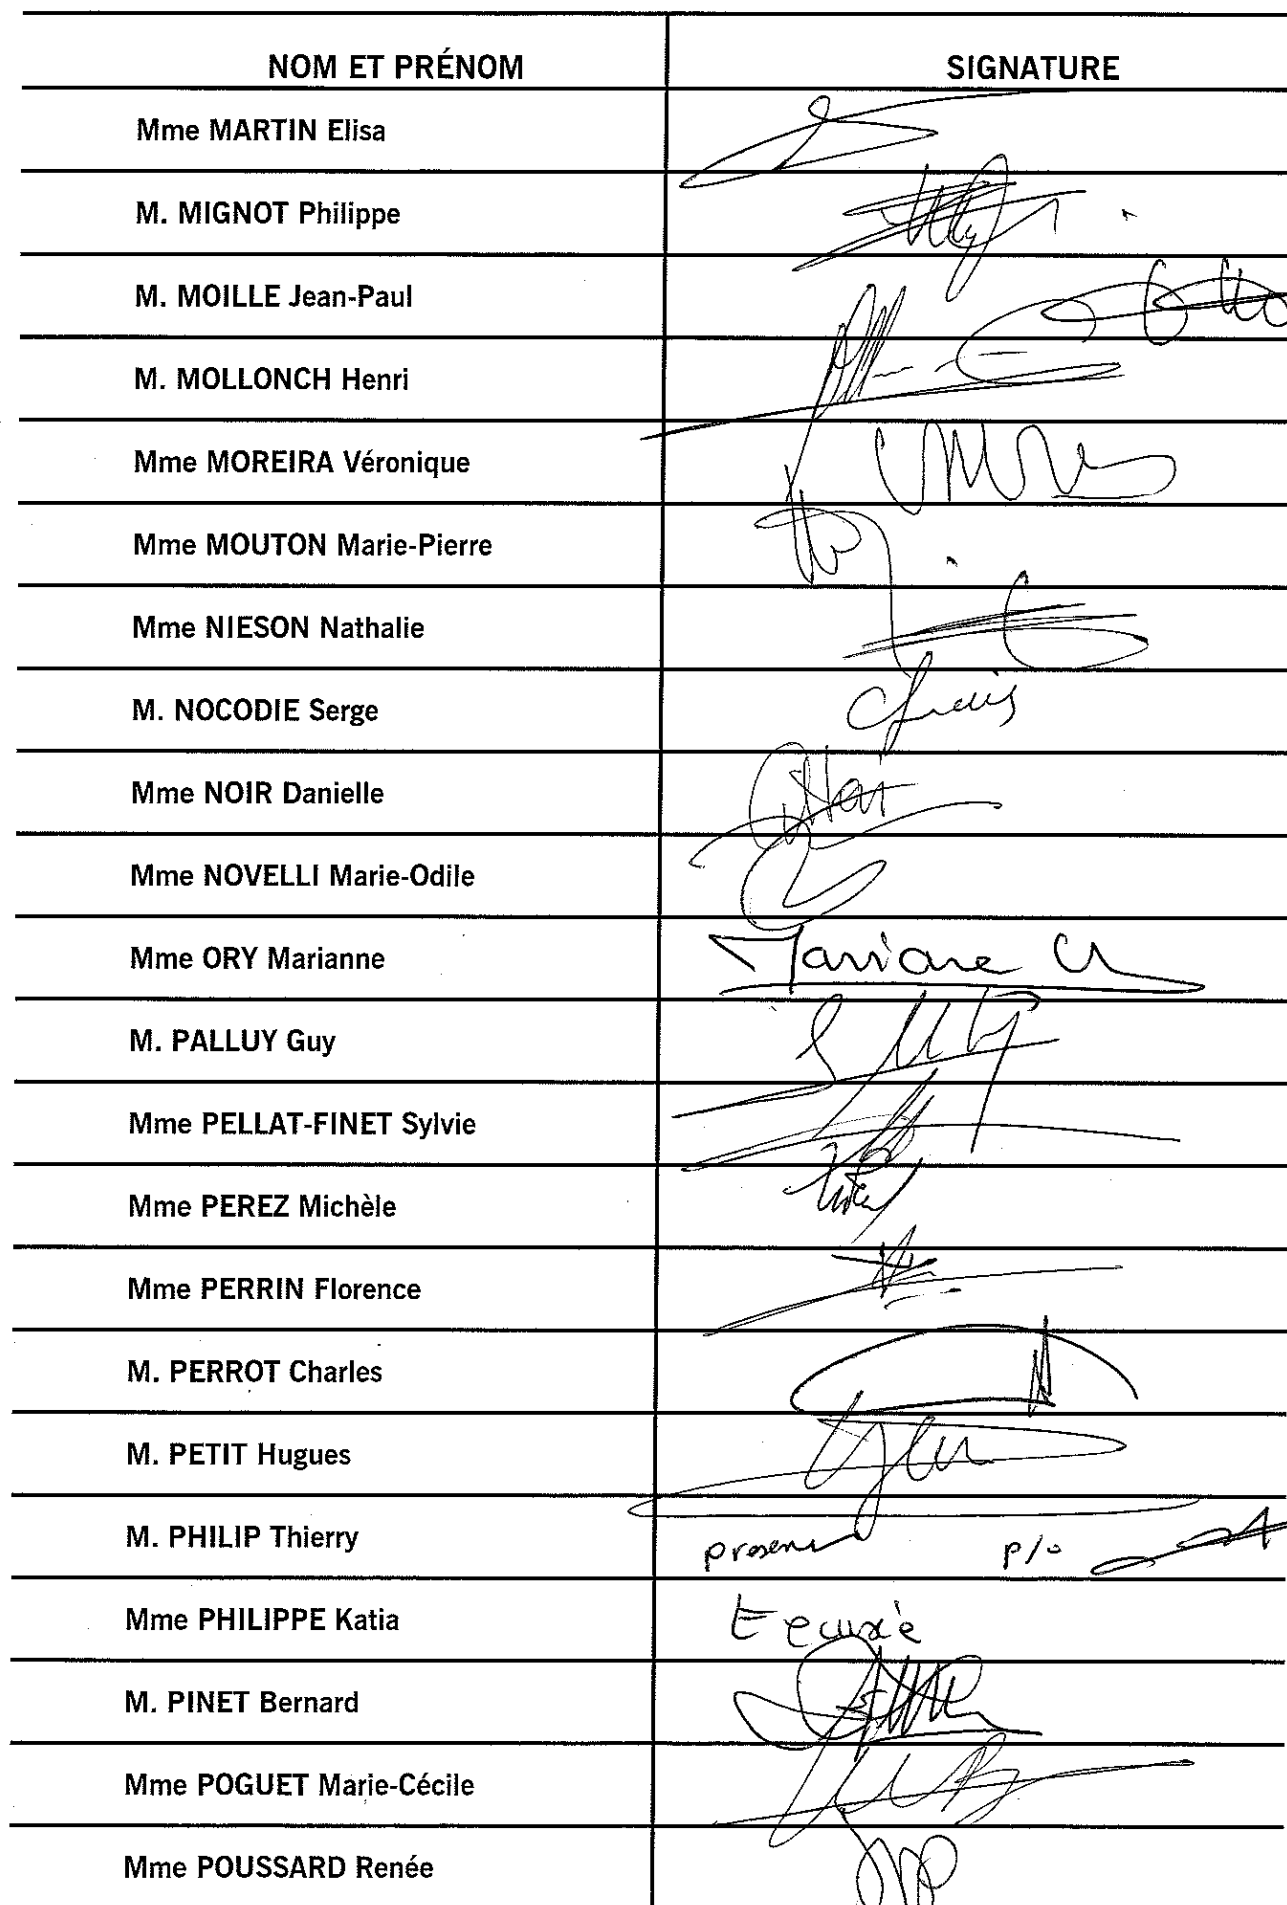 NOM ET PRÉNOM SIGNATURE
Mme MARTIN Elisa
M. MIGNOT Philippe
M. MOILLE Jean-Paul
M. MOLLONCH Henri
Mme MOREIRA Véronique
Mme MOUTON Marie-Pierre
Mme NIESON Nathalie
M. NOCODIE Serge
Mme NOIR Danielle
Mme NOVELLI Marie-Odile
Mme ORY Marianne
M. PALLUY Guy
Mme PELLAT-FINET Sylvie
Mme PEREZ Michèle
Mme PERRIN Florence
M. PERROT Charles
M. PETIT Hugues
M. PHILIP Thierry p/o
Mme PHILIPPE Katia
M. PINET Bernard
Mme POGUET Marie-Cécile
Mme POUSSARD Renée